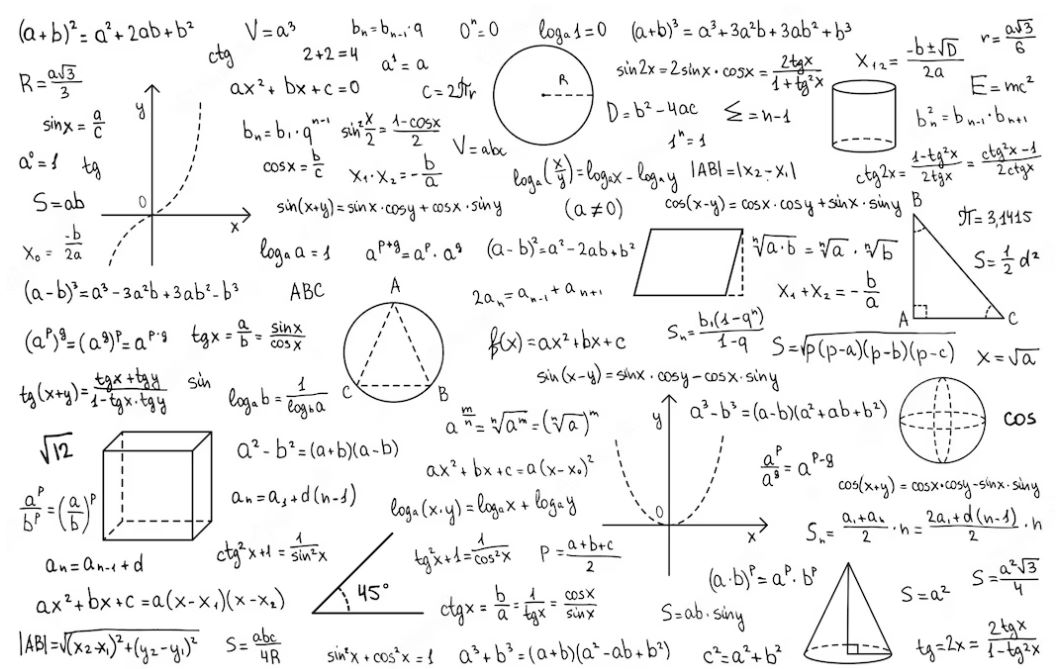 (a+b)² = a² + 2ab + b²
V = a³
bₙ = bₙ₋₁ · q
0ⁿ = 0
logₐ1 = 0
(a+b)³ = a³ + 3a²b + 3ab² + b³
r = a√3/6
ctg
2+2=4
a¹ = a
sin2x = 2sinx · cosx = 2tgx/1+tg²x
X₁₂ = -b±√D/2a
R = a√3/3
ax² + bx + c = 0
c = 2πr
R
E = mc²
y
sinx = a/c
bₙ = b₁ · qⁿ⁻¹
sin² x/2 = 1-cosx/2
V = abc
D = b² - 4ac
Σ = n-1
bₙ² = bₙ₋₁ · bₙ₊₁
1ⁿ = 1
a⁰ = 1
tg
cosx = b/c
x₁ · x₂ = - b/a
logₐ(x/y) = logₐx - logₐy
|AB| = |x₂ - x₁|
ctg2x = 1-tg²x/2tgx = ctg²x-1/2ctgx
S = ab
0
x
sin(x+y) = sinx · cosy + cosx · siny
(a ≠ 0)
cos(x-y) = cosx · cosy + sinx · siny
B
π = 3,1415
X₀ = -b/2a
logₐ a = 1
aᵖ⁺ᵍ = aᵖ · aᵍ
(a-b)² = a² - 2ab + b²
ⁿ√a·b = ⁿ√a · ⁿ√b
S = 1/2 d²
(a-b)³ = a³ - 3a²b + 3ab² - b³
ABC
A
2aₙ = aₙ₋₁ + aₙ₊₁
X₁ + X₂ = - b/a
A
C
(aᵖ)ᵍ = (aᵍ)ᵖ = aᵖ·ᵍ
tgx = a/b = sinx/cosx
f(x) = ax² + bx + c
Sₙ = b₁(1-qⁿ)/1-q
S = √p(p-a)(p-b)(p-c)
X = √a
tg(x+y) = tgx+tgy/1-tgx·tgy
sin
logₐb = 1/log_b a
C
B
sin(x-y) = sinx · cosy - cosx · siny
a^(m/n) = ⁿ√aᵐ = (ⁿ√a)ᵐ
y
a³ - b³ = (a-b)(a² + ab + b²)
cos
√12
a² - b² = (a+b)(a-b)
ax² + bx + c = a(x-x₀)²
aᵖ/aᵍ = aᵖ⁻ᵍ
cos(x+y) = cosx·cosy - sinx·siny
aᵖ/bᵖ = (a/b)ᵖ
aₙ = a₁ + d(n-1)
logₐ(x·y) = logₐx + logₐy
0
x
Sₙ = a₁+aₙ/2 · n = 2a₁+d(n-1)/2 · n
aₙ = aₙ₋₁ + d
ctg²x+1 = 1/sin²x
tg²x+1 = 1/cos²x
P = a+b+c/2
(a·b)ᵖ = aᵖ · bᵖ
S = a²
S = a²√3/4
ax² + bx + c = a(x-x₁)(x-x₂)
45°
ctgx = b/a = 1/tgx = cosx/sinx
S = ab · siny
|AB| = √(x₂-x₁)² + (y₂-y₁)²
S = abc/4R
sin²x + cos²x = 1
a³ + b³ = (a+b)(a² - ab + b²)
c² = a² + b²
tg = 2x = 2tgx/1-tg²x